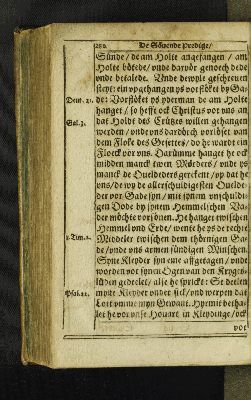 280. De Söuende Predige/
Sünde/ de am Holte angefangen/ am
Holte bötede/ unde darvör genoech dede
unde betalede. Unde dewyle geschreuen
steyt: ein upgehangen ys vorflökt by Ga-
Deut. 21.
de: Vorflöket ys yderman de am Holte
hanget/ so hefft och Christus vor uns an
Gal. 3.
dat Holdt des Crützes willen gehangen
werden/ unde uns dardörch vorlöset van
dem Floke des Gesettes/ do he wardt ein
Floeck vor uns. Darümme hanget he ock
midden manck twen Mörders/ unde ys
manck de Oueldeders gerekent/ op dat he
uns/ de wy de allerschuldigesten Quelde-
der vor Gade syn/ mit synem unschuldi-
gen Dode by synem Hemmelischen Va-
der möchte vorsönen. He hanget twischen
Hemmel und Erde/ wente he ys de rechte
1. Tim. 2.
Middeler twischen dem thörnigen Ga-
de/ unde uns armen sündigen Minschen.
Syne Kleyder syn eme affgetagen/ unde
worden vor synen Ogen van den Kryges-
lüden gedeelet/ alse he sprickt: Se deelen
Psal. 22.
myne Kleyder under sick/ und werpen dat
Lott umme myn Gewant. Hyrmit betha-
let he vor unse Houart in Kleydinge/ ock
vor